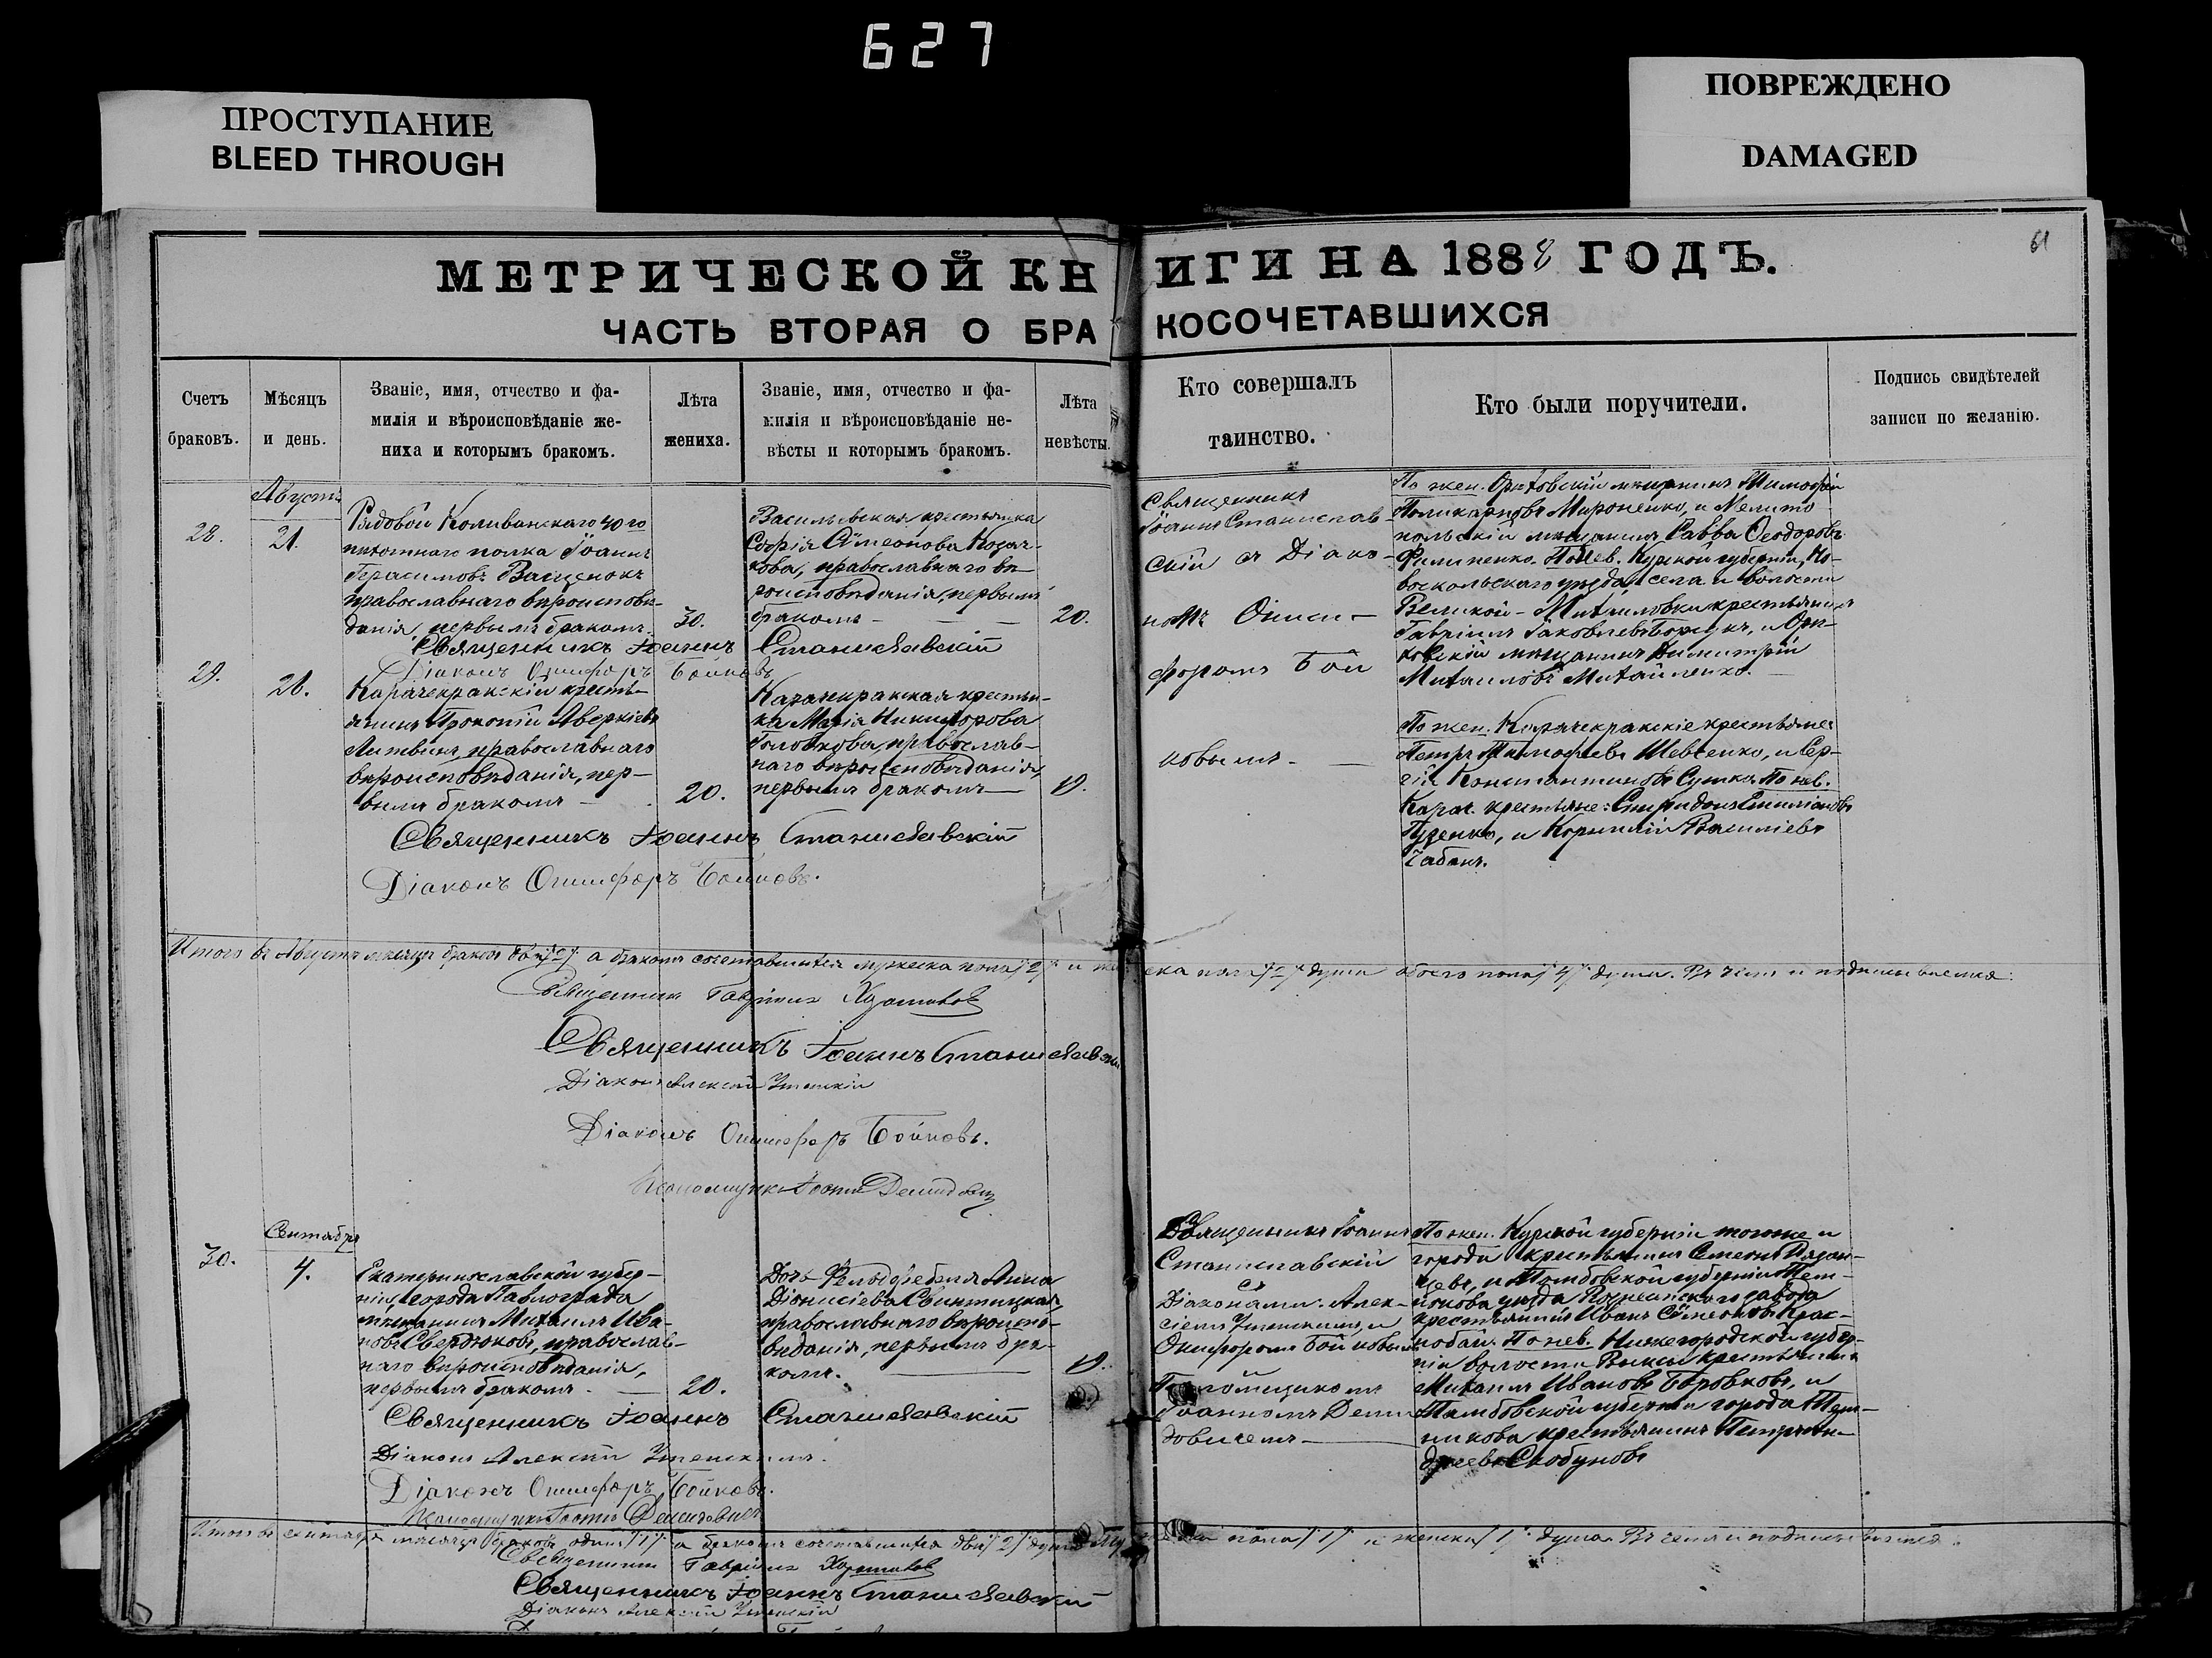 627
ПРОСТУПАНИЕ
BLEED THROUGH
ПОВРЕЖДЕНО
DAMAGED
61
МЕТРИЧЕСКОЙ КНИГИ НА 1888 ГОДЪ.
ЧАСТЬ ВТОРАЯ О БРАКОСОЧЕТАВШИХСЯ
Счетъ
браковъ.
Мѣсяцъ
и день.
Званіе, имя, отчество и фа-
милія и вѣроисповѣданіе же-
ниха и которымъ бракомъ.
Лѣта
жениха.
Званіе, имя, отчество и фа-
милія и вѣроисповѣданіе не-
вѣсты и которымъ бракомъ.
Лѣта
невѣсты.
Кто совершалъ
таинство.
Кто были поручители.
Подпись свидѣтелей
записи по желанію.
28.
Августъ
21.
Рядовой Коливанскаго 40го
пѣхотнаго полка Іоаннъ
Герасимовъ Ващенокъ
православнаго вѣроисповѣ-
данія, первымъ бракомъ.
30.
Васильевская крестьянка
Софія Сѵмеонова Козач-
кова, православнаго вѣ-
роисповѣданія, первымъ
бракомъ
20.
Священникъ
Іоаннъ Станислав-
скій съ Діако-
номъ Ониси-
форомъ Бой
ковымъ
По жен. Орѣховскій мѣщанинъ Тимофей
Поликарповъ Мироненко, и Мелито
польскій мѣщанинъ Савва Ѳеодоровъ
Филипенко. По нев. Курской губерніи, Но-
воскольскаго уѣзда, села и волости
Великой-Михайловки крестьянинъ
Гавріилъ Іаковлевъ, и Орѣ-
ховскій мѣщанинъ Димитрій
Михаиловъ Михайленко.
Священникъ Іоаннъ Станиславскій
Діаконъ Онисифоръ Бойковъ
29.
21.
Карачекракскій кресть-
янинъ Прокопій Аверкіевъ
Литвинъ, православнаго
вѣроисповѣданія, пер-
вымъ бракомъ
20.
Карачекракская крестьян-
ка Марія Никифорова
Головкова, православ-
наго вѣроисповѣданія,
первымъ бракомъ
19.
По жен. Карачекракскіе крестьяне
Петръ Тимофеевъ Шевченко, и Сер-
гій Константиновъ Сушко. По нев.
Карач. крестьяне: Спиридонъ
Гузенко, и Корнилій Василіевъ
Чабанъ.
Священникъ Іоаннъ Станиславскій
Діаконъ Онисифоръ Бойковъ.
Итого въ Августѣ мѣсяцѣ браковъ два /2/. а бракомъ сочетавшихся мужеска пола /2/ и женска пола /2/ души обоего пола /4/ души. Въ чемъ и подписываемся:
Священникъ Гавріилъ
Священникъ Іоаннъ Станиславскій
Діаконъ Алексій
Діаконъ Онисифоръ Бойковъ.
Демидовичъ
Сентябрь
30.
4.
Екатеринославской губер-
ніи, города Павлограда
мѣщанинъ Михаилъ Ива-
новъ Свердюковъ, православ-
наго вѣроисповѣданія,
первымъ бракомъ
20.
Дочь Фельдфебеля Анна
Діонисіева Свинтицкая,
православнаго вѣроиспо-
вѣданія, первымъ бра-
комъ.
19.
Священникъ Іоаннъ
Станиславскій
съ
Діаконами: Алек-
сіемъ и
Онисифоромъ Бойковымъ
Іоанномъ Деми
довичемъ
По жен. Курской губерніи тогоже и
города крестьянинъ Семенъ Рязан-
цевъ, и Тамбовской губерніи Тем-
никова уѣзда завода
крестьянинъ Иванъ Сѵмеоновъ Крас-
нобай. По нев. Нижегородской губер-
ніи волости Выксы крестьянинъ
Михаилъ Ивановъ Боровковъ, и
Тамбовской губерніи города Тем-
никова крестьянинъ Петръ Ан-
дреевъ Скобуновъ
Священникъ Іоаннъ Станиславскій
Діаконъ Алексій
Діаконъ Онисифоръ Бойковъ.
Демидовичъ
Итого въ сентябрѣ мѣсяцѣ браковъ одинъ /1/. а бракомъ сочетавшихся двѣ /2/ души пола /1/ и женска /1/ душа. Въ чемъ и подписываемся.
Священникъ Гавріилъ
Священникъ Іоаннъ Станиславскій
Діаконъ Алексій